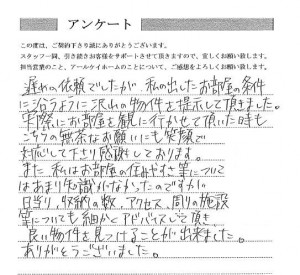 アンケート
この度は、ご契約下さり誠にありがとうございます。
スタッフ一同、引き続きお客様をサポートさせて頂きますので、宜しくお願い致します。
担当営業のこと、アールケイホームのことについて、ご感想をよろしくお願い致します。
遅れの依頼でしたが、私の出したお部屋の条件
に沿うように沢山の物件を提示して頂きました。
実際にお部屋を観に行かせて頂いた時も
こちらの無茶なお願いにも笑顔で
対応して下さり感謝しております。
また、私はお部屋の住みやすさ等について
はあまり知識がなかったのですが、
日当り、収納の数、アクセス、周りの施設
等についても細かくアドバイスして頂き、
良い物件を見つけることが出来ました。
ありがとうございました。